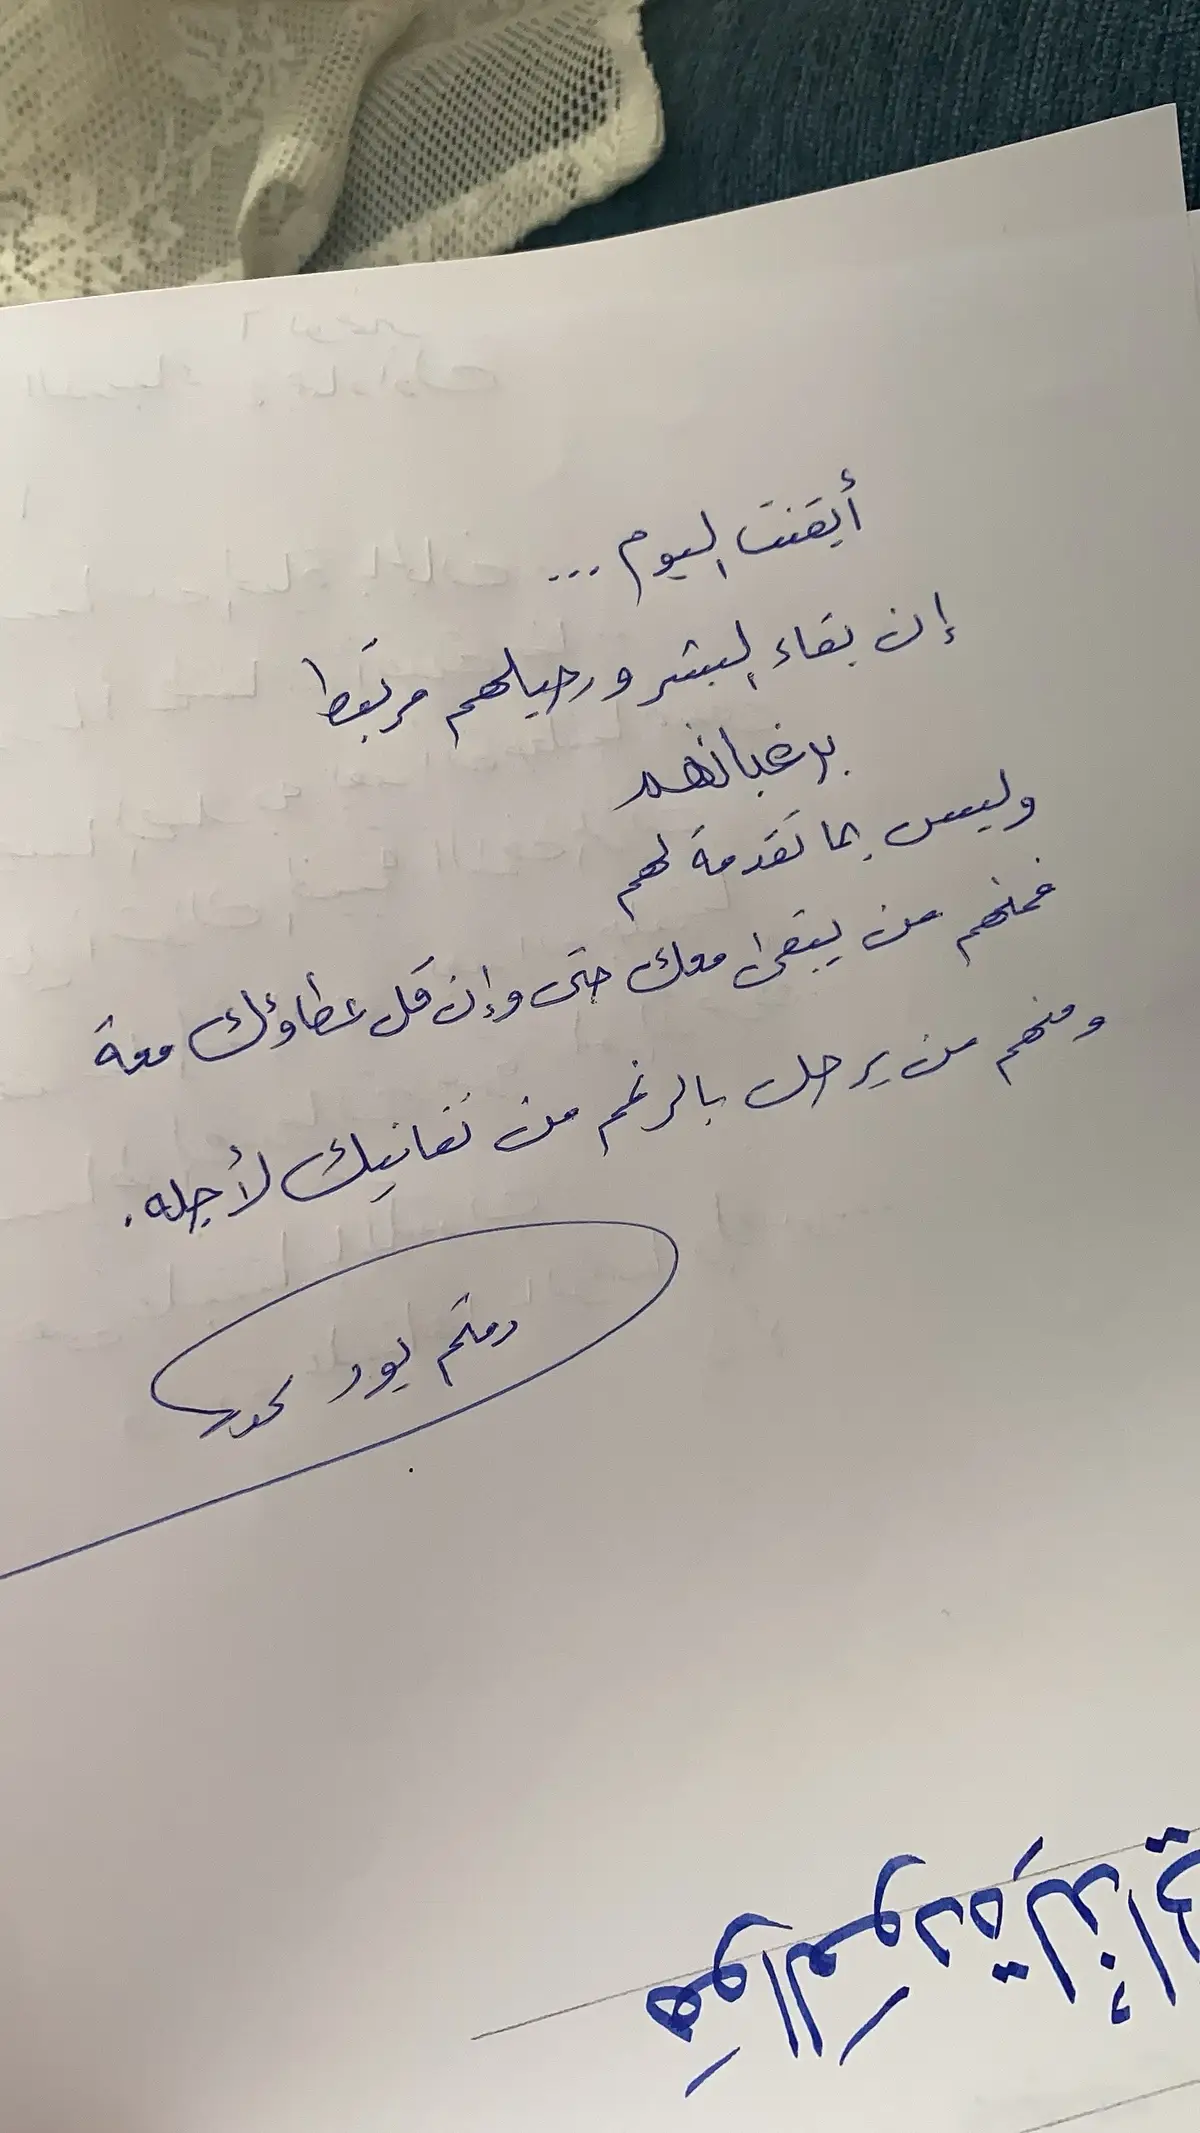 أيقنت اليوم ...
إن بقاء البشر ورحيلهم مرتبط
برغباتهم
وليس بما تقدمة لهم
فمنهم من يبقى معك حتى وإن قل عطاؤك معة
ومنهم من يرحل بالرغم من تفانيك لأجله .
دمتم بود
هو العودة لذات